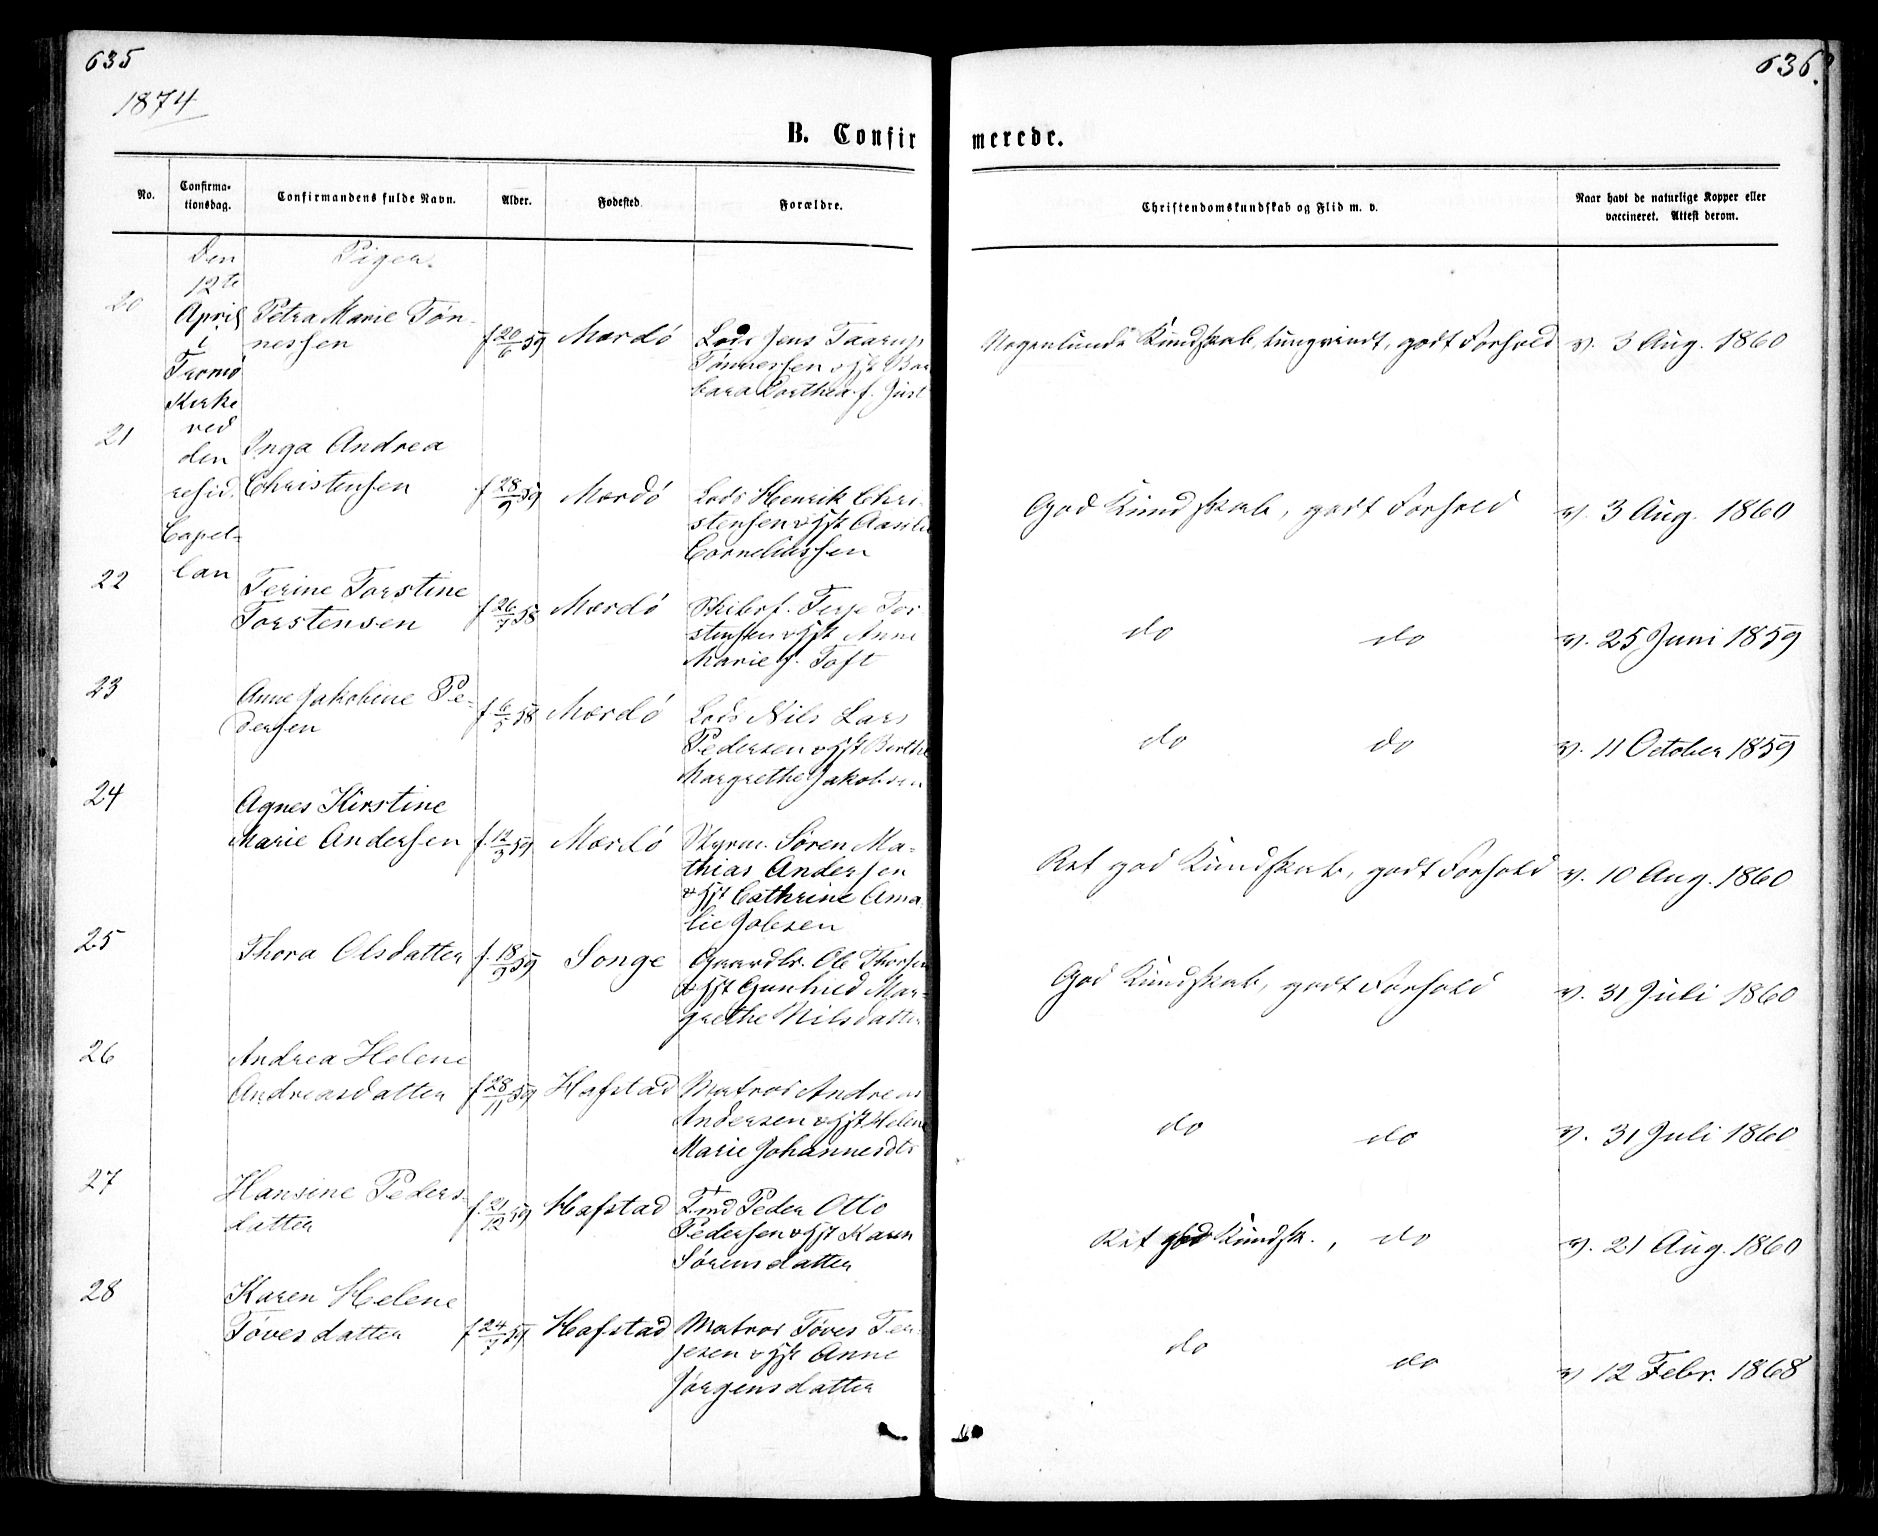 635
636.
1874
B. Confirmerede.
No.
Confirmationsdag.
Confirmandens fulde Navn.
Alder.
Fødested
Forældre.
Christendomskundskab og Flid m. v.
Naar havt de naturlige Kopper eller vaccineret. Attest derom.
Den
12te
April
i
Tromø
Kirke
ved
den
resid.
Capel-
lan
Piger.
20
Petra Marie Tøn-
nessen
f 20/6 59
Mærdø
Lods Jens Taarup
Tønnessen & Hst Bar
bara Dorthea f. Just
Nogenlunde Kundskab, tungvindt, godt Forhold
v. 3 Aug. 1860
21
Inga Andrea
Christensen
f 28/9 59
Mærdø
Lods Henrik Chri-
stensen & Hst Aaslu
Corneliussen
God Kundskab, godt Forhold
v. 3 Aug. 1860
22
Terine Torstine
Torstensen
f 26/7 58
Mærdø
Skibsf. Terje Tor
stensen & Hst Anne
Marie f. Toft
do do
v. 25 Juni 1859
23
Anne Jakobine Pe-
dersen
f 6/5 58
Mærdø
Lods Nils Lars
Pedersen & Hst Berthe
Margrethe Jakobsen
do do
v. 11 October 1859
24
Agnes Kirstine
Marie Andersen
f. 12/3 59
Mærdø
Styrm. Søren Ma-
thias Andersen
& Hst Cathrine Ama
lie Jobsen
Ret god Kundskab, godt Forhold
v. 10 Aug. 1860
25
Thora Olsdatter
f. 18/9 59
Songe
Gaardbr. Ole Thorsen
& Hst Gunhild Mar-
grethe Nilsdatter
God Kundskab, godt Forhold
v. 31 Juli 1860
26
Andrea Helene
Andreasdatter
f 28/11 59
Hafstad
Matros Andreas
Andersen & Hst Helene
Marie Johannesdtr
do do
v. 31 Juli 1860
27
Hansine Peders-
datter
f. 21/12 59
Hafstad
Tmd Peder Otto
Pedersen & Hst Karen
Sørensdatter
Ret god Kundsk., do
v. 21 Aug. 1860
28
Karen Helene
Tøvesdatter
f 24/7 59
Hafstad
Matros Tøves Ter-
jesen & Hst Anne
Jørgensdatter
do do
v 12 Febr. 1868